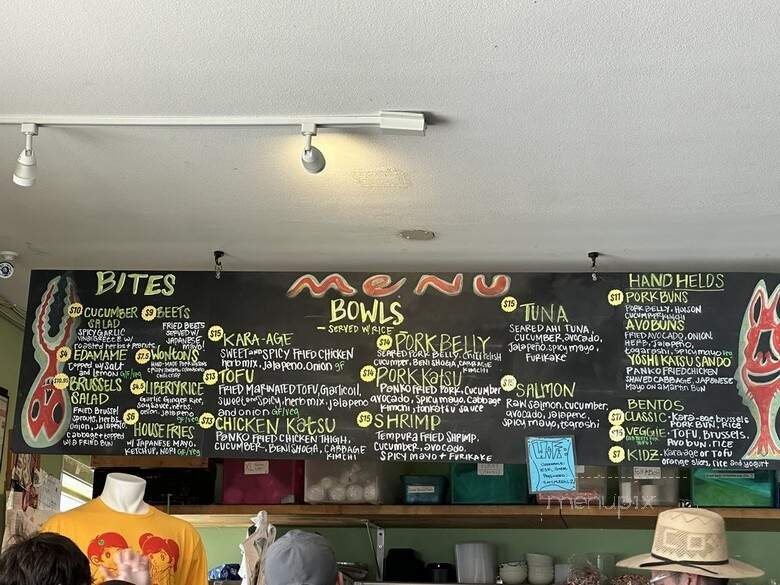 BITES
$10 CUCUMBER SALAD
SPICY GARLIC
VINAIGRETTE W/
roasted herbs + peanuts
$4 EDAMAME
topped w/ salt
and lemon gf/veg
$10.95 BRUSSELS SALAD
Fried Brussel
sprouts, herbs,
onion, Jalapeno
cabbage + topped
w/ a fried BUN
$9 BEETS
FRIED BEETS
SERVED W/
JAPANESE
MAYO
WONTONS
LIBERTY RICE
Garlic, Ginger Rice,
soy sauce, herbs,
onion
$6 HOUSE FRIES
W/ JAPANESE MAYO,
KETCHUP, NORI gf/veg
MENU
BOWLS
- SERVED W/ RICE -
$15 KARA-AGE
SWEET and SPICY FRIED CHICKEN
herb mix, jalapeno, onion gf
$13 TOFU
FRIED MARINATED TOFU, Garlic oil,
sweet and spicy, herb mix, jalapeno
and onion gf/veg
CHICKEN KATSU
PANKO FRIED CHICKEN THIGH,
CUCUMBER, BENI SHOGA, CABBAGE
KIMCHI
PORK BELLY
SEARED PORK BELLY,
CUCUMBER, BENI SHOGA, CABBAGE
KIMCHI
$14 PORK KATSU
PANKO FRIED PORK, cucumber
avocado, spicy mayo, cabbage
kimchi, tonkatsu sauce
$15 SHRIMP
TEMPURA FRIED SHRIMP,
CUCUMBER, avocado,
SPICY MAYO + FURIKAKE
$15 TUNA
SEARED AHI TUNA,
CUCUMBER, avocado,
jalapeno, spicy mayo,
FURIKAKE
SALMON
RAW SALMON, cucumber
avocado, jalapeno,
spicy mayo, togarashi
HAND HELDS
$11 PORK BUNS
PORK BELLY, HOISON
CUCUMBER KIMCHI
AVO BUNS
FRIED AVOCADO, ONION,
HERB, jalapeno,
togarashi, spicy mayo veg
YOSHI KATSU SANDO
PANKO FRIED CHICKEN
SHAVED CABBAGE, JAPANESE
Mayo on a MARTIN BUN
BENTOS
$17 CLASSIC - Kara-age, brussels
PORK BUN, RICE
VEGGIE - TOFU, BRUSSELS,
AVO BUN, RICE
$7 KIDZ - Karaage or TOFU
orange slices, rice and yogurt
menupix